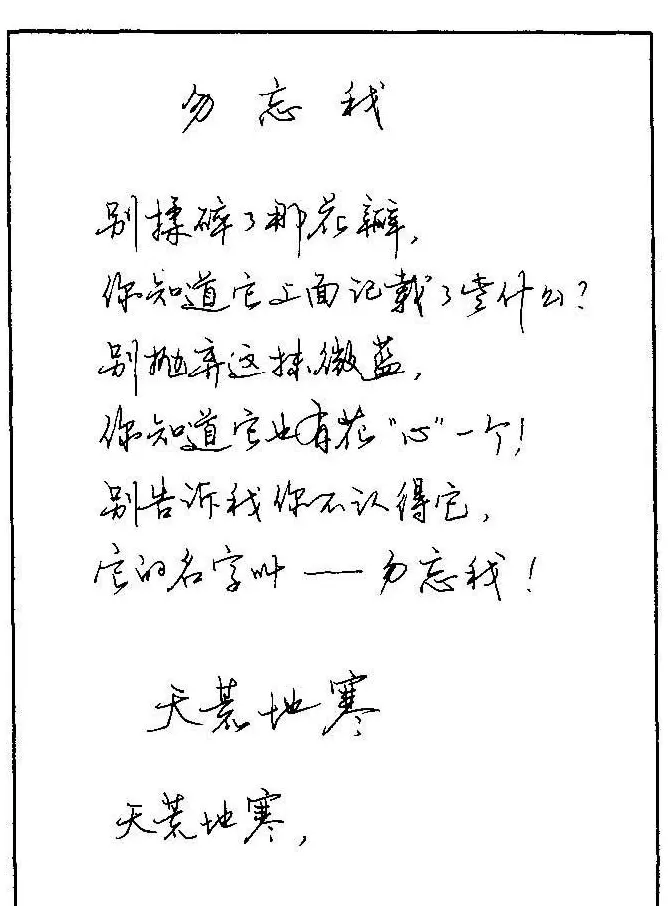 勿忘我
别揉碎了那花瓣,
你知道它上面记载了些什么?
别抛弃这抹微蓝,
你知道它也有花“心”一个!
别告诉我你不认得它,
它的名字叫——勿忘我!
天荒地寒
天荒地寒,